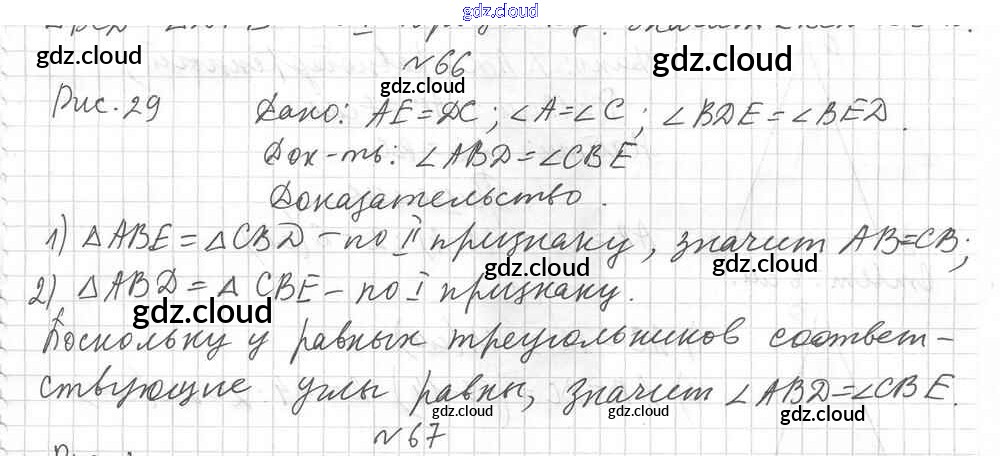 gdz.cloud
gdz.cloud gdz.cloud
№66
gdz.cloud
Рис. 29 Дано: AE=DC; ∠A=∠C; ∠BDE=∠BED.
Док-ть: ∠ABD=∠CBE
Доказательство.
1) △ABE=△CBD – по II признаку, значит AB=CB;
gdz.cloud gdz.cloud
2) △ABD=△CBE – по I признаку.
gdz.cloud
Поскольку у равных треугольников соответ-
ствующие углы равны, значит ∠ABD=∠CBE.
gdz.cloud gdz.cloud gdz.cloud
№67